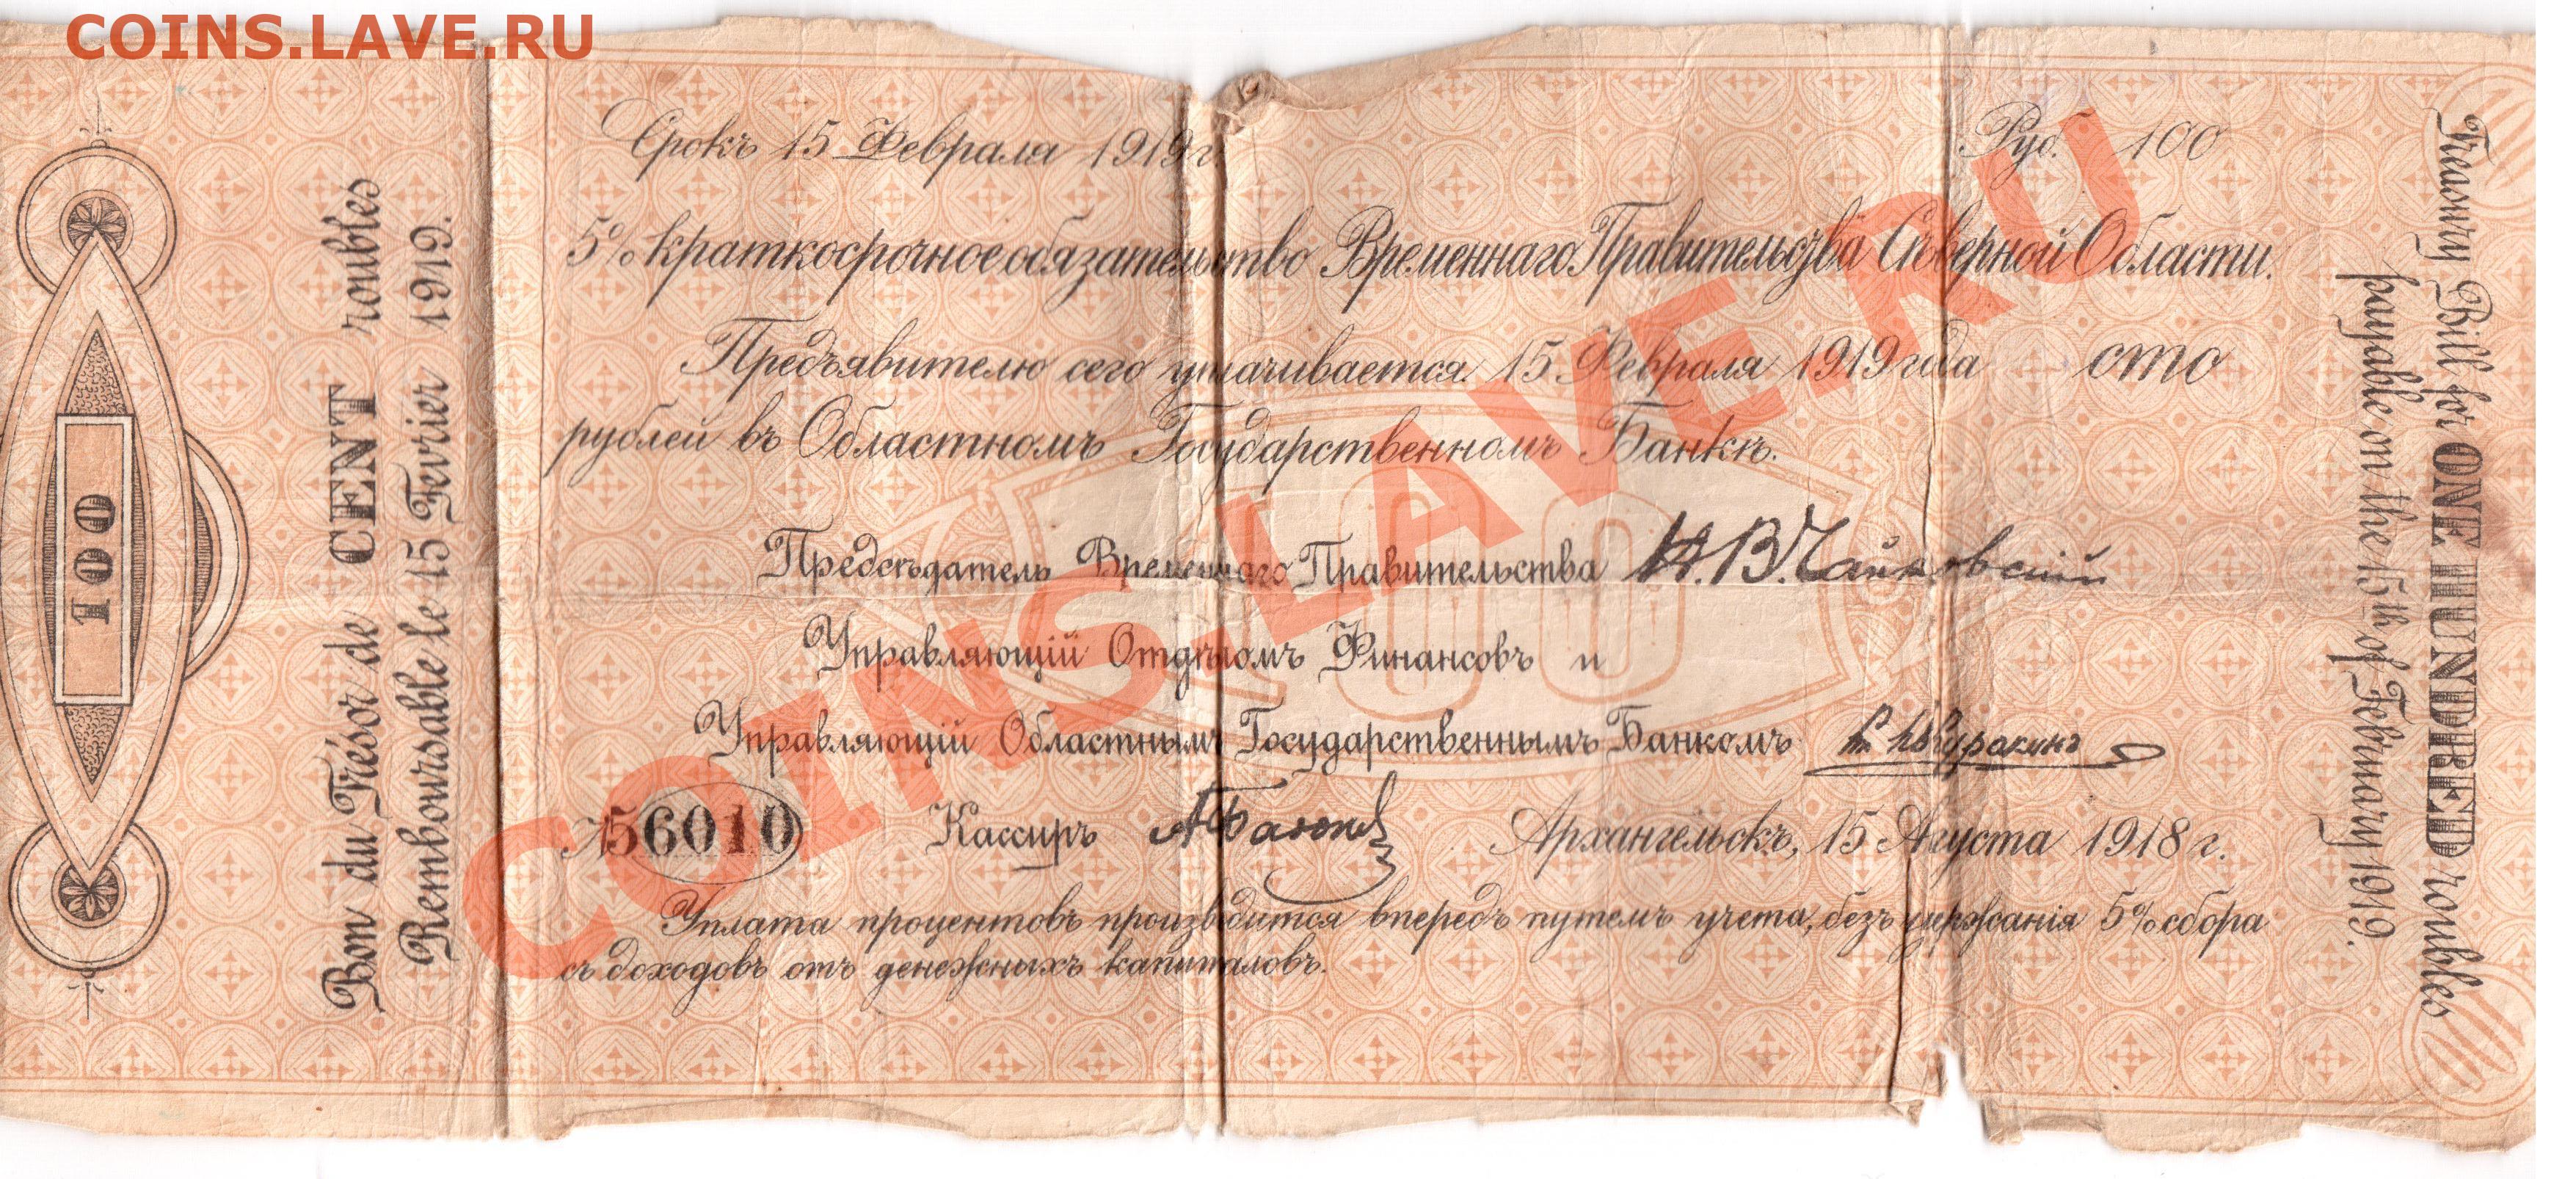 COINS.LAVE.RU
100
Bon du Trésor de CENT roubles
Remboursable le 15 Fevrier 1919.
Срокъ 15 Февраля 1919 г.
Руб. 100
5% краткосрочное обязательство Временнаго Правительства Сѣверной Области.
Предъявителю сего уплачивается 15 Февраля 1919 года сто
рублей въ Областномъ Государственномъ Банкѣ.
Предсѣдатель Временнаго Правительства Н.В.Чайковскій
Управляющій Отдѣломъ Финансовъ и
Управляющій Областнымъ Государственнымъ Банкомъ
№ 56010 Кассиръ Архангельскъ, 15 Августа 1918 г.
Уплата процентовъ производится впередъ путемъ учета, безъ удержанія 5% сбора
съ доходовъ отъ денежныхъ капиталовъ.
100
Treasury Bill for ONE HUNDRED roubles
payable on the 15th of February 1919.
COINS.LAVE.RU